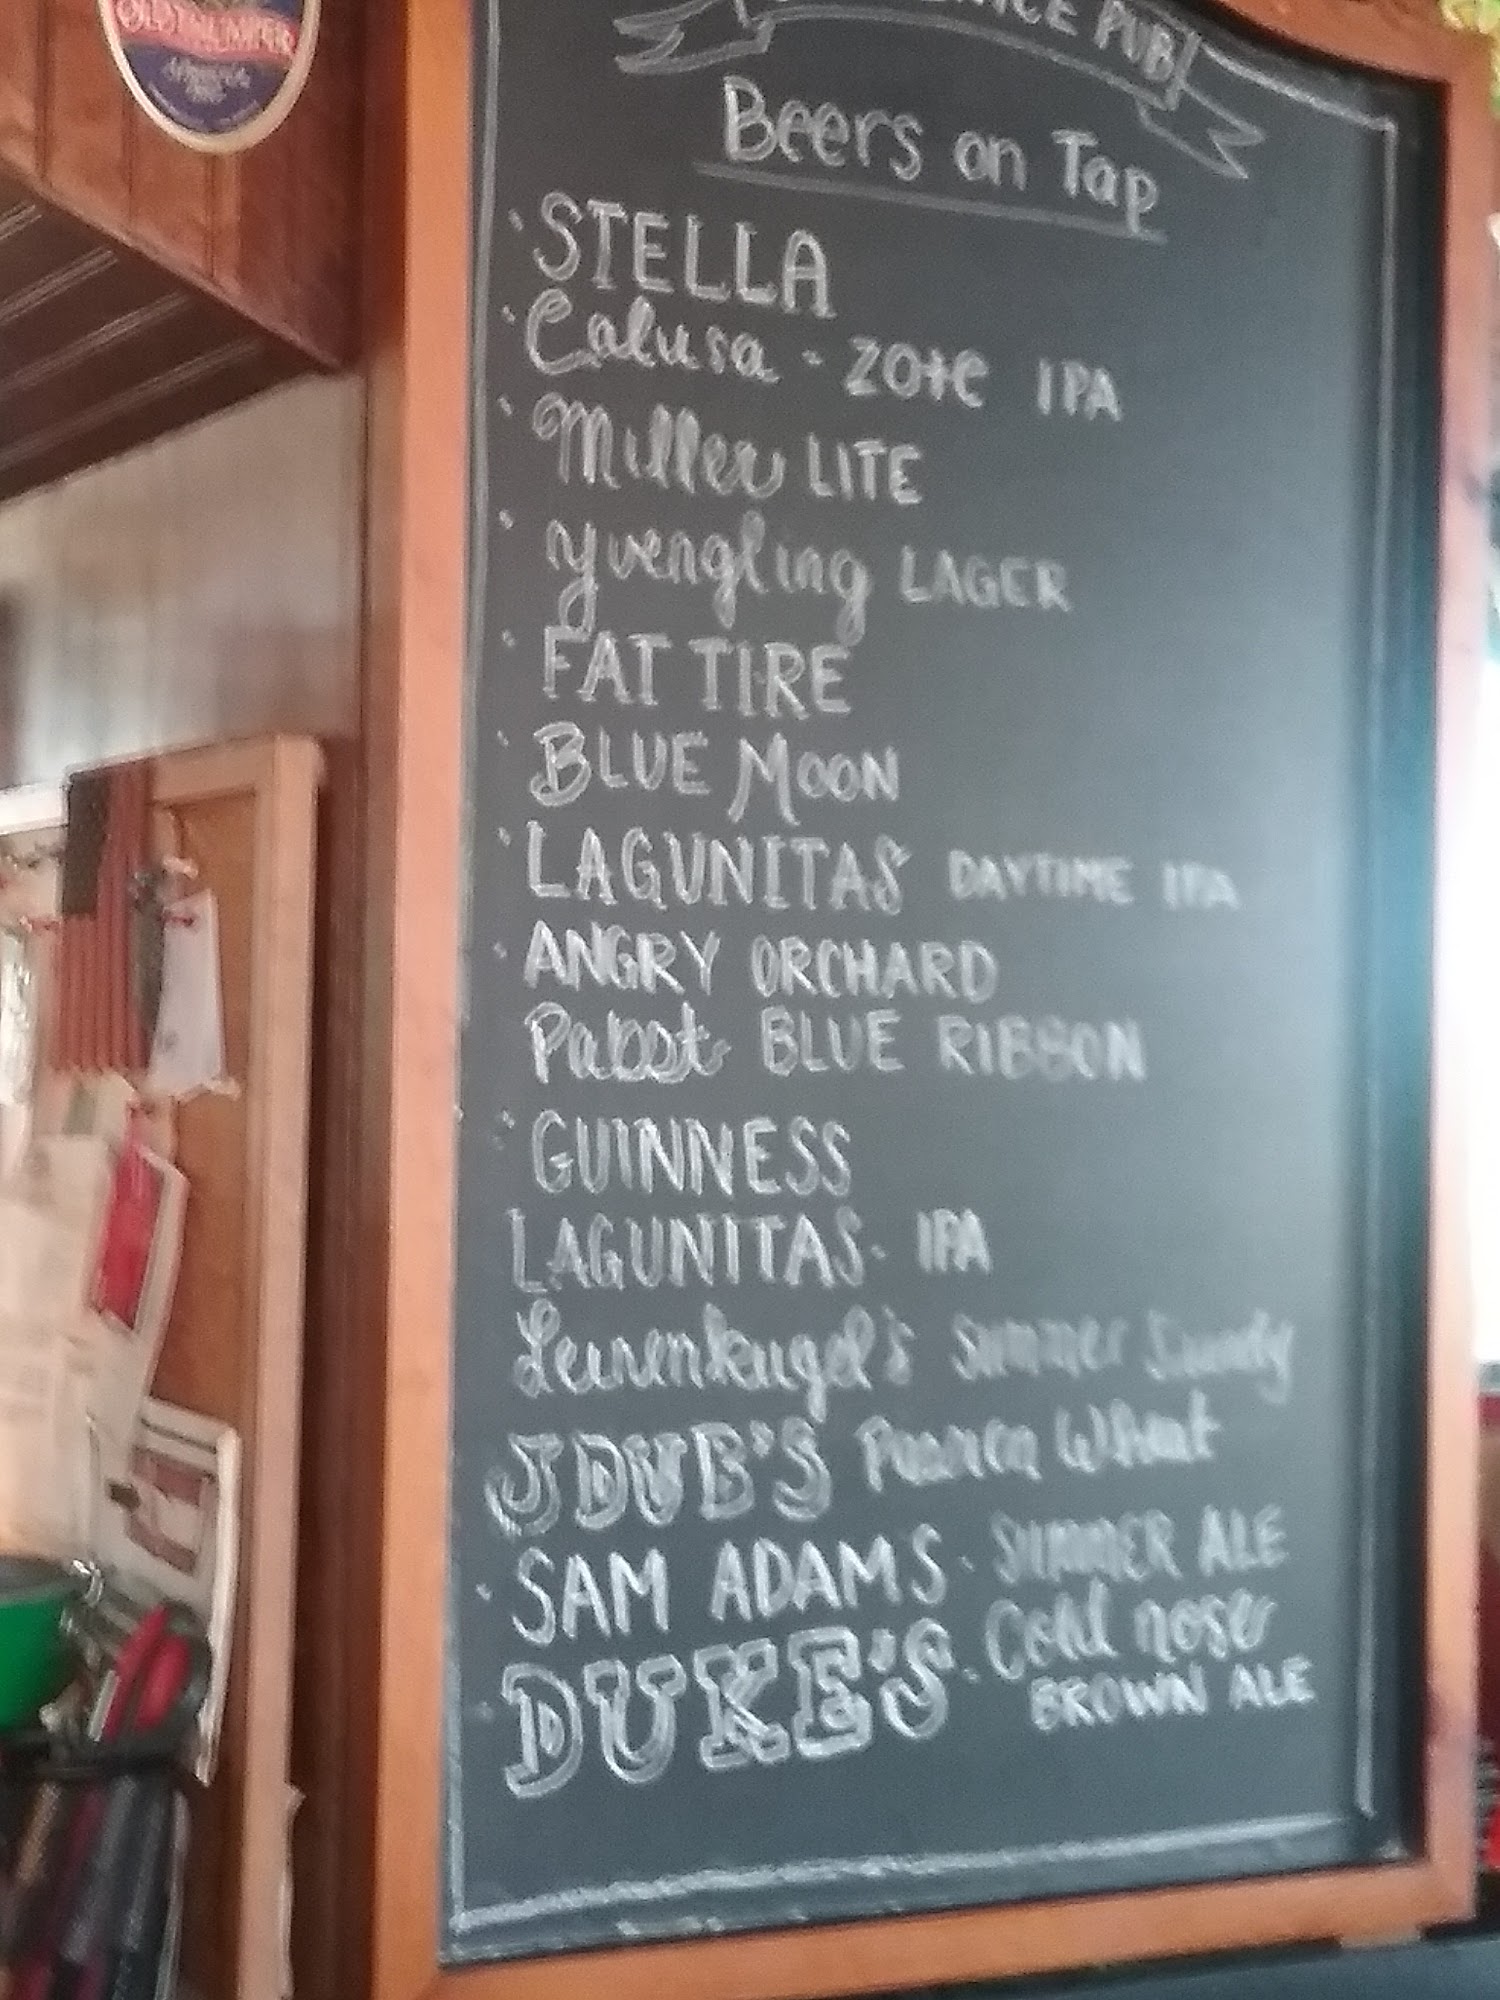 OLD SPECKLED
PUB
Beers on Tap
STELLA
Calusa - Zote IPA
Miller LITE
Yuengling LAGER
FAT TIRE
BLUE MOON
LAGUNITAS DAYTIME IPA
ANGRY ORCHARD
Pabst BLUE RIBBON
GUINNESS
LAGUNITAS - IPA
Leinenkugel's Summer Shandy
JDUB'S Passion Wheat
SAM ADAMS - SUMMER ALE
DUKE'S - Cold nose
BROWN ALE